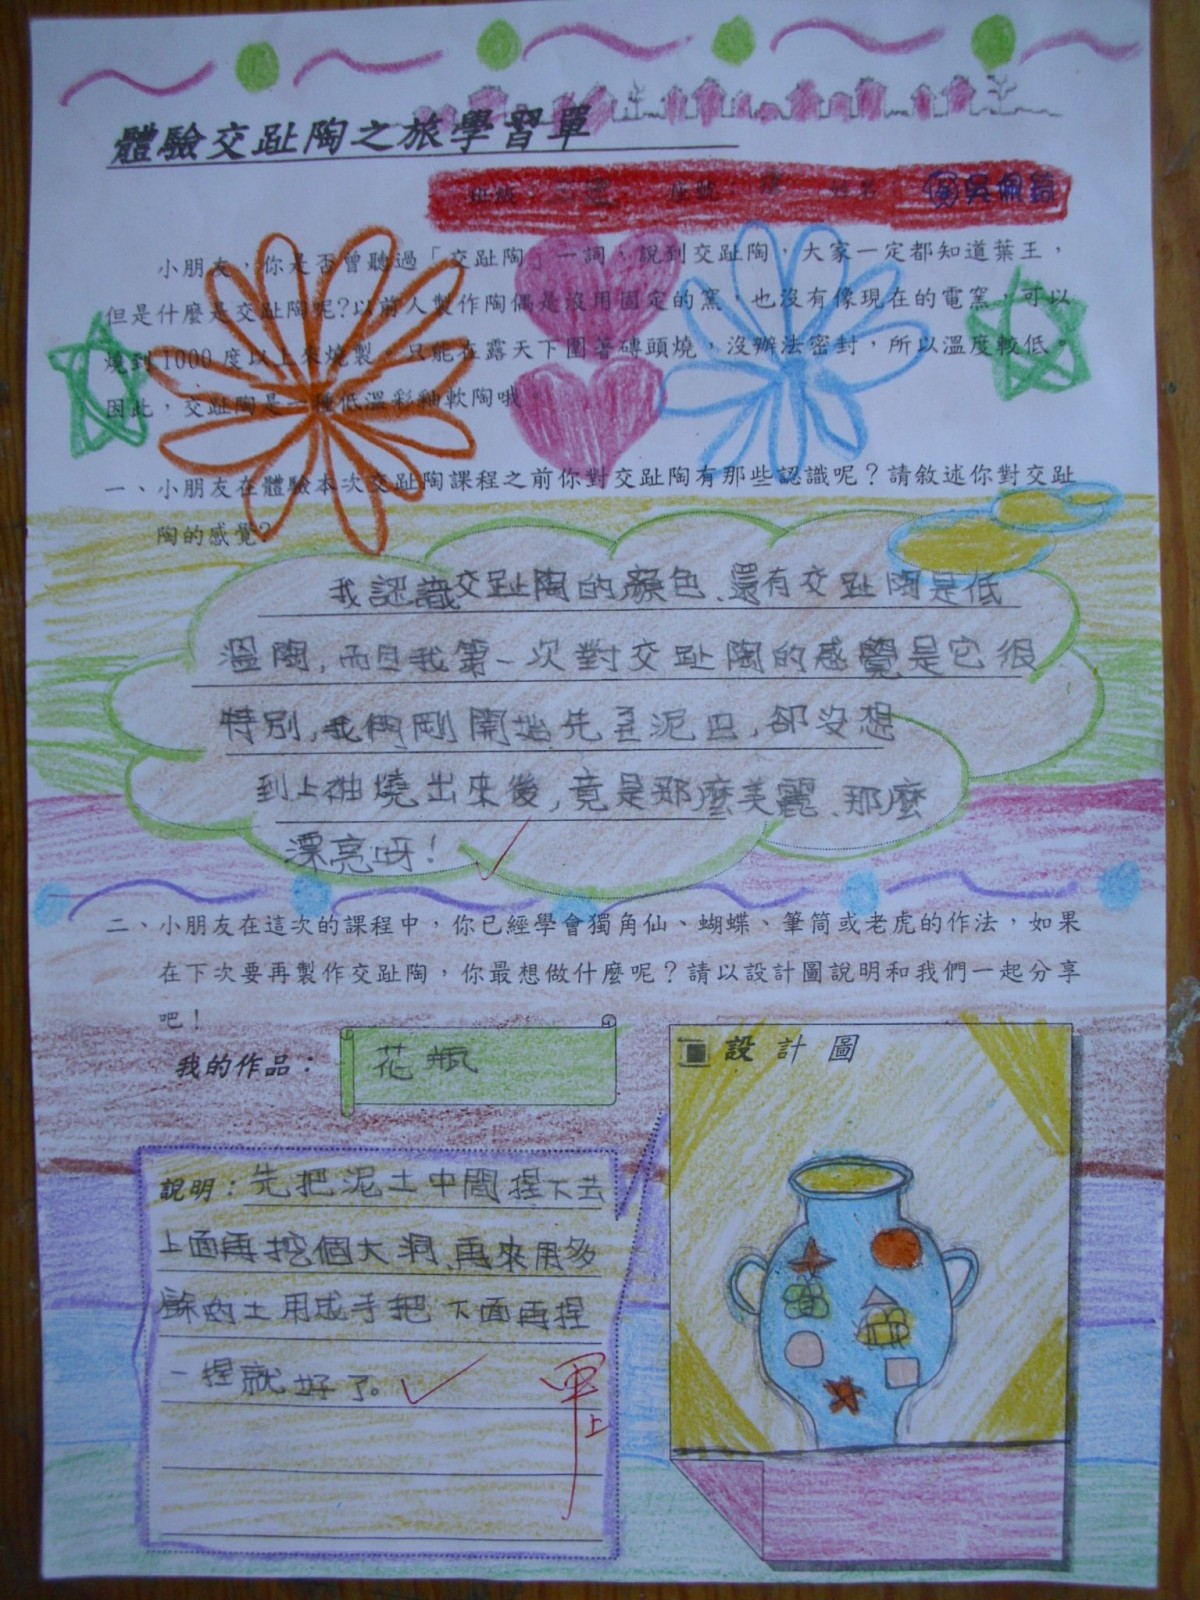 體驗交趾陶之旅學習單
班級： 座號： 姓名：
小朋友，你是否曾聽過「交趾陶」一詞，說到交趾陶，大家一定都知道葉王，
但是什麼是交趾陶呢?以前人製作陶偶是沒用固定的窯，也沒有像現在的電窯，可以
燒到1000度以上來燒製。只能在露天下圍著磚頭燒，沒辦法密封，所以溫度較低。
因此，交趾陶是一種低溫彩釉軟陶哦。
一、小朋友在體驗本次交趾陶課程之前你對交趾陶有那些認識呢？請敘述你對交趾
陶的感覺?
我認識交趾陶的顏色、還有交趾陶是低
溫陶，而且我第一次對交趾陶的感覺是它很
特別，我們剛開始先 泥巴，卻沒想
到上袖燒出來後，竟是那麼美麗、那麼
漂亮呀！
二、小朋友在這次的課程中，你已經學會獨角仙、蝴蝶、筆筒或老虎的作法，如果
在下次要再製作交趾陶，你最想做什麼呢？請以設計圖說明和我們一起分享
吧！
我的作品：
花瓶
設計圖
說明：先把泥土中間捏下去
上面再挖個大洞、再來用多
餘的土用成手把 下面再捏
一捏就好了。
甲上